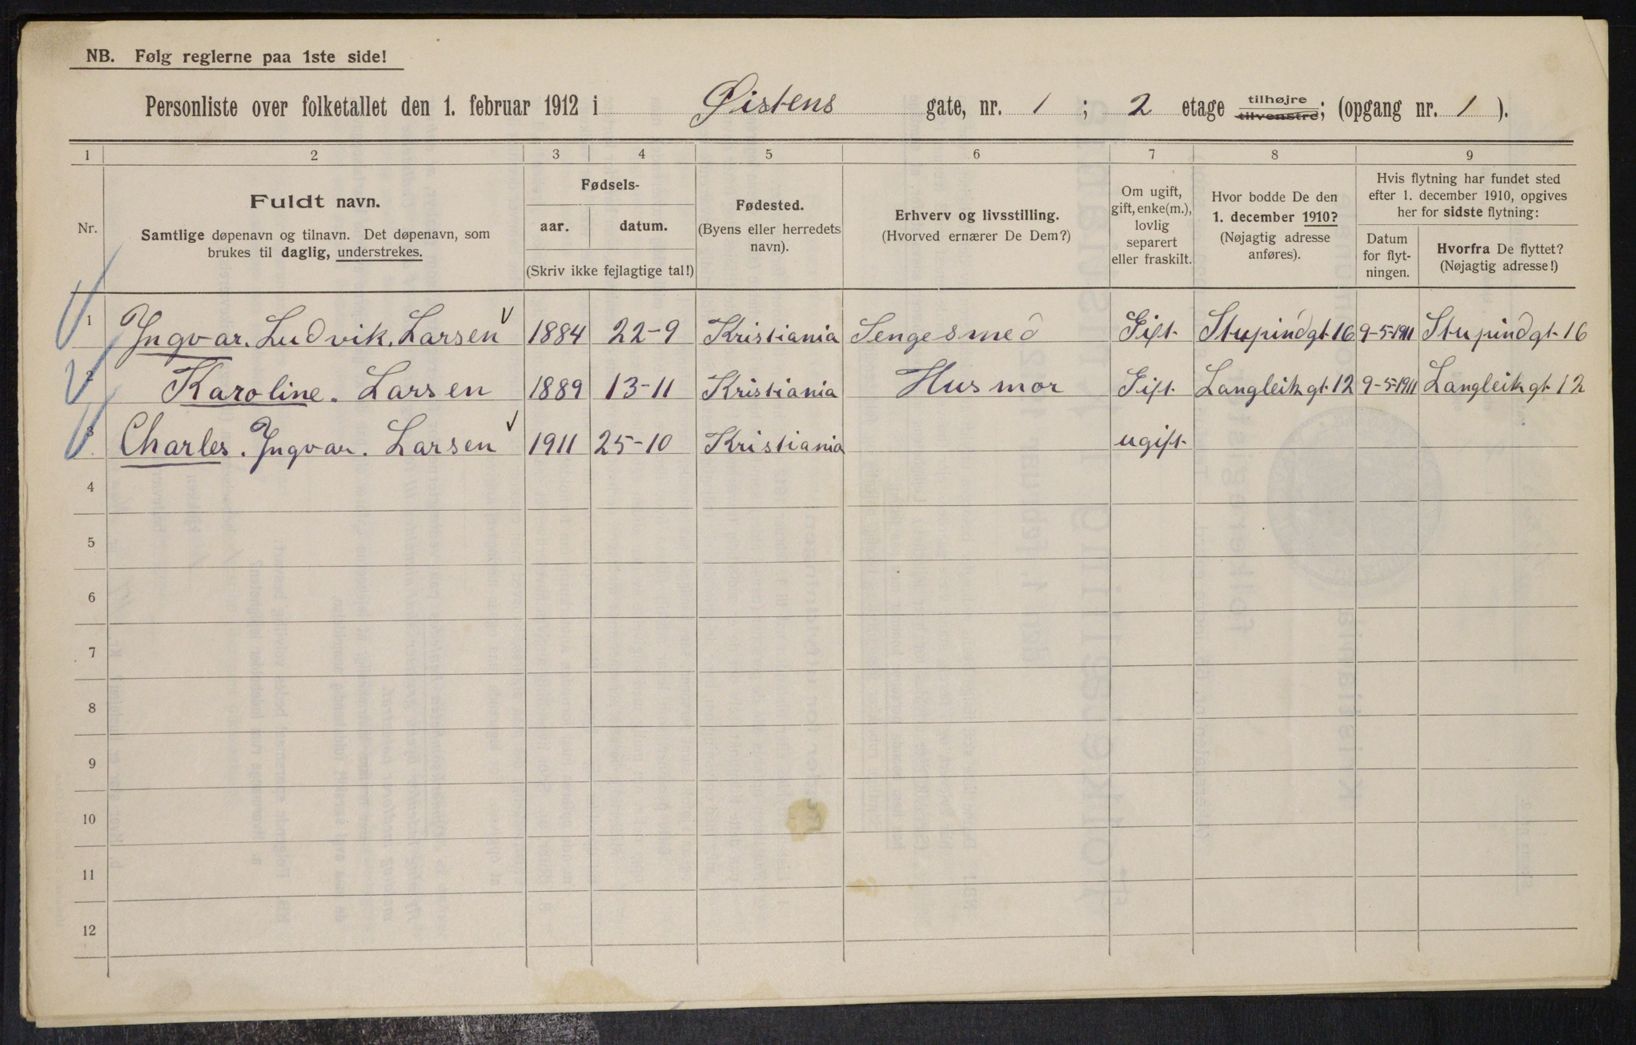 NB. Følg reglerne paa 1ste side!
Personliste over folketallet den 1. februar 1912 i Øistens gate, nr. 1 ; 2 etage tilhøjre tilvenstre; (opgang nr. 1 ).
1 2 3 4 5 6 7 8 9
Nr.
Fuldt navn.
Samtlige døpenavn og tilnavn. Det døpenavn, som
brukes til daglig, understrekes.
Fødsels-
aar. datum.
(Skriv ikke fejlagtige tal!)
Fødested.
(Byens eller herredets
navn).
Erhverv og livsstilling.
(Hvorved ernærer De Dem?)
Om ugift,
gift, enke(m.),
lovlig
separert
eller fraskilt.
Hvor bodde De den
1. december 1910?
(Nøjagtig adresse
anføres).
Hvis flytning har fundet sted
efter 1. december 1910, opgives
her for sidste flytning:
Datum
for flyt-
ningen.
Hvorfra De flyttet?
(Nøjagtig adresse!)
1 Yngvar. Ludvik. Larsen 1884 22-9 Kristiania Sengesmed Gift Stupindgt 16 9-5-1911 Stupindgt 16
2 Karoline. Larsen 1889 13-11 Kristiania Husmor Gift Langleikgt 12 9-5-1911 Langleikgt 12
3 Charles. Yngvar. Larsen 1911 25-10 Kristiania ugift
4
5
6
7
8
9
10
11
12